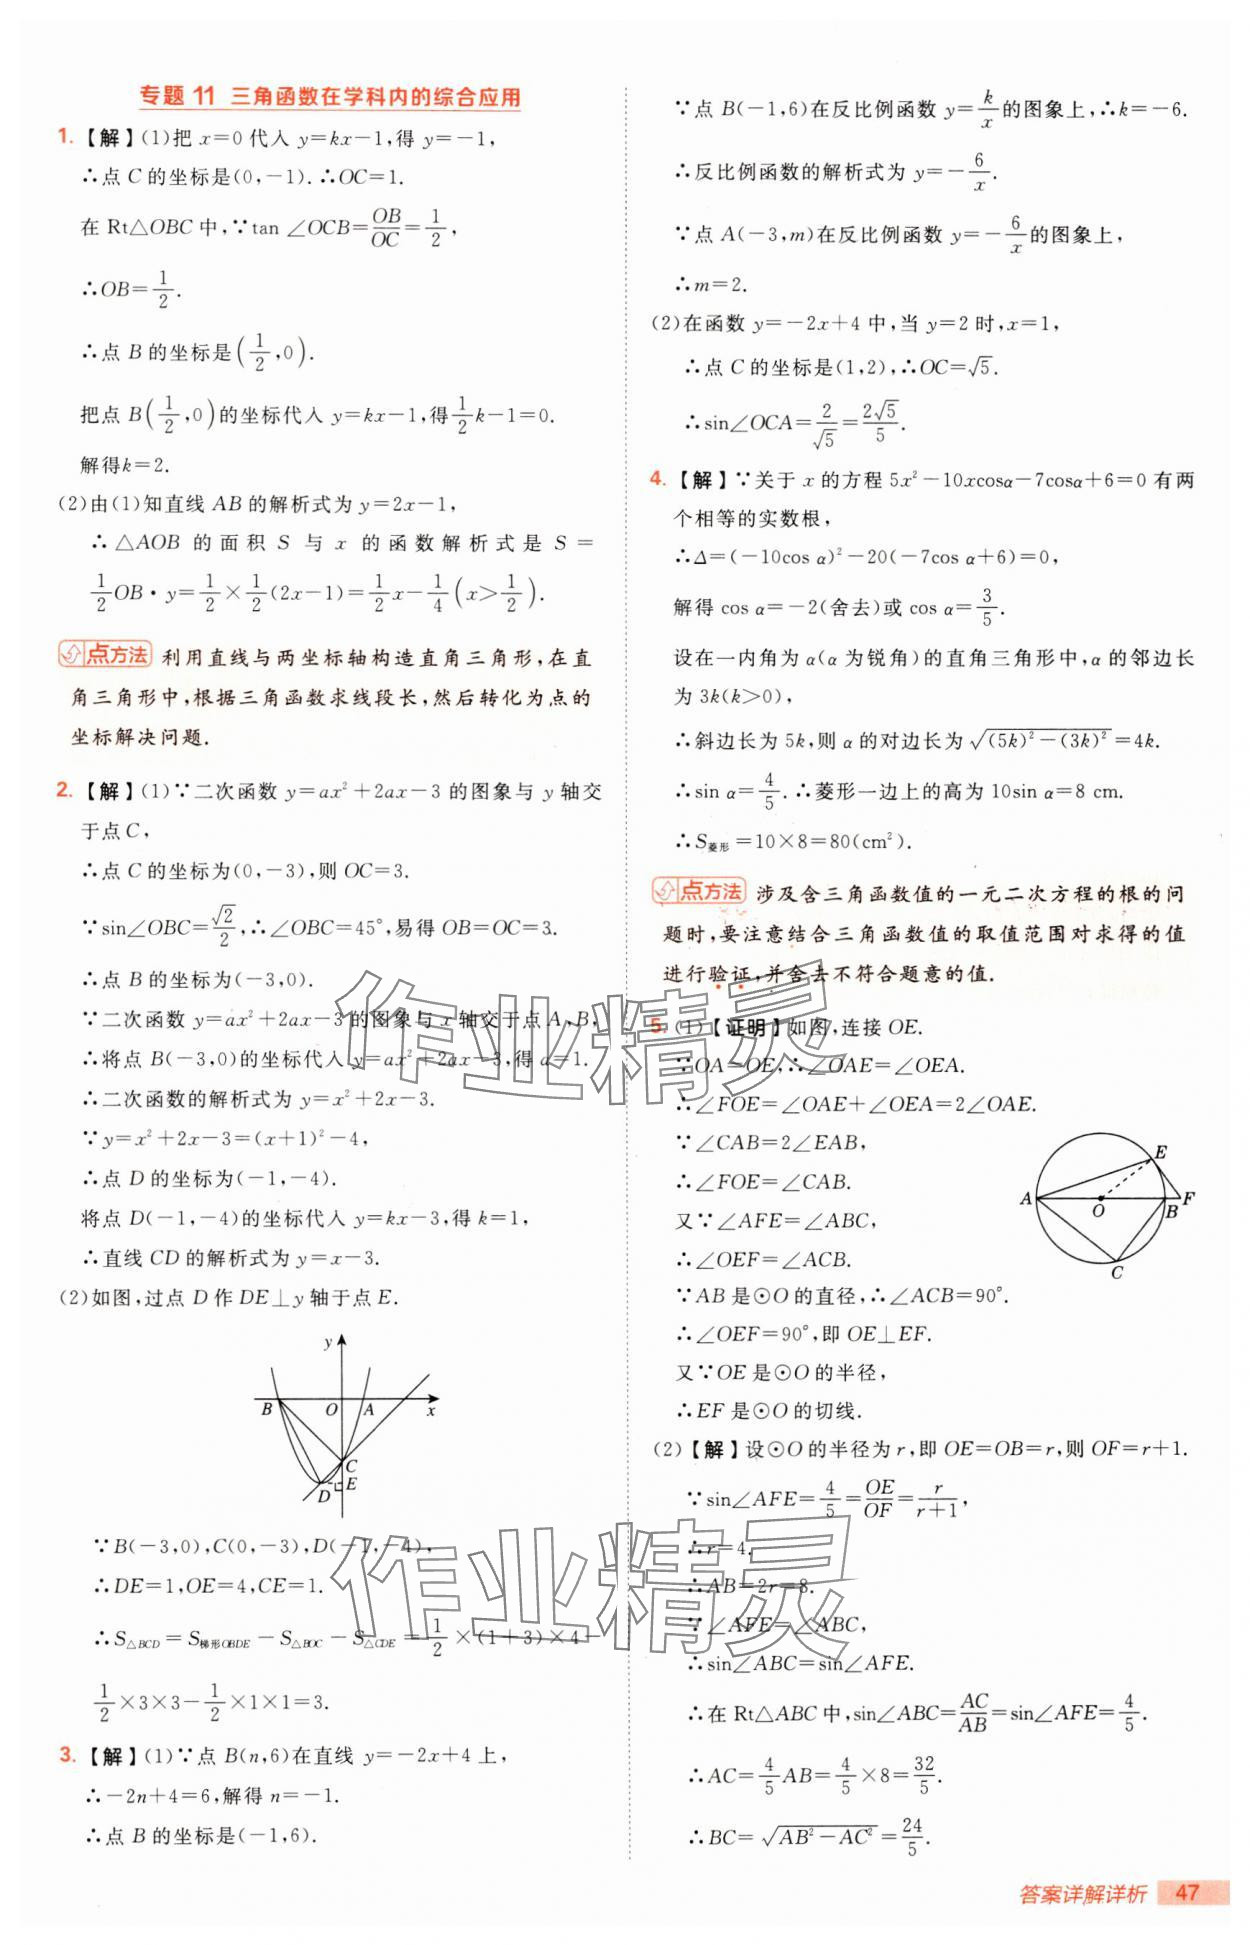 专题 11 三角函数在学科内的综合应用
1.【解】(1)把 x=0 代入 y=kx-1,得 y=-1,
∴点 C 的坐标是(0,-1).∴OC=1.
在 Rt△OBC 中,∵tan ∠OCB=OB/OC=1/2,
∴OB=1/2.
∴点 B 的坐标是(1/2,0).
把点 B(1/2,0)的坐标代入 y=kx-1,得1/2k-1=0.
解得k=2.
(2)由(1)知直线 AB 的解析式为 y=2x-1,
∴△AOB 的面积 S 与 x 的函数解析式是 S=
1/2OB·y=1/2×1/2(2x-1)=1/2x-1/4(x>1/2).
点方法 利用直线与两坐标轴构造直角三角形,在直
角三角形中,根据三角函数求线段长,然后转化为点的
坐标解决问题.
2.【解】(1)∵二次函数 y=ax²+2ax-3 的图象与 y 轴交
于点C,
∴点 C 的坐标为(0,-3),则 OC=3.
∵sin∠OBC=√2/2,∴∠OBC=45°,易得 OB=OC=3.
∴点 B 的坐标为(-3,0).
∵二次函数 y=ax²+2ax-3的图象与 x 轴交于点 A,B,
∴将点 B(-3,0)的坐标代入 y=ax²+2ax-3,得 a=1.
∴二次函数的解析式为 y=x²+2x-3.
∵y=x²+2x-3=(x+1)²-4,
∴点 D 的坐标为(-1,-4).
将点 D(-1,-4)的坐标代入 y=kx-3,得 k=1,
∴直线 CD 的解析式为 y=x-3.
(2)如图,过点 D 作 DE⊥y 轴于点 E.
y
B O A x
C
D E
∵B(-3,0),C(0,-3),D(-1,-4),
∴DE=1,OE=4,CE=1.
∴S△BCD=S梯形OBDE-S△BOC-S△CDE=1/2×(1+3)×4-
1/2×3×3-1/2×1×1=3.
3.【解】(1)∵点 B(n,6)在直线 y=-2x+4 上,
∴-2n+4=6,解得 n=-1.
∴点 B 的坐标是(-1,6).
∵点 B(-1,6)在反比例函数 y=k/x的图象上,∴k=-6.
∴反比例函数的解析式为 y=-6/x.
∵点 A(-3,m)在反比例函数 y=-6/x的图象上,
∴m=2.
(2)在函数 y=-2x+4 中,当 y=2 时,x=1,
∴点 C 的坐标是(1,2),∴OC=√5.
∴sin∠OCA=2/√5=2√5/5.
4.【解】∵关于 x 的方程 5x²-10xcosα-7cosα+6=0 有两
个相等的实数根,
∴Δ=(-10cos α)²-20(-7cos α+6)=0,
解得 cos α=-2(舍去)或 cos α=3/5.
设在一内角为 α(α 为锐角)的直角三角形中,α 的邻边长
为 3k(k>0),
∴斜边长为 5k,则 α 的对边长为 √((5k)²-(3k)²)=4k.
∴sin α=4/5.∴菱形一边上的高为 10sin α=8 cm.
∴S菱形=10×8=80(cm²).
点方法 涉及含三角函数值的一元二次方程的根的问
题时,要注意结合三角函数值的取值范围对求得的值
进行验证,并舍去不符合题意的值.
5.(1)【证明】如图,连接 OE.
∵OA=OE,∴∠OAE=∠OEA.
∴∠FOE=∠OAE+∠OEA=2∠OAE.
∵∠CAB=2∠EAB,
∴∠FOE=∠CAB.
又∵∠AFE=∠ABC,
∴∠OEF=∠ACB.
∵AB 是⊙O 的直径,∴∠ACB=90°.
∴∠OEF=90°,即 OE⊥EF.
又∵OE 是⊙O 的半径,
∴EF 是⊙O 的切线.
E
A O B F
C
(2)【解】设⊙O 的半径为 r,即 OE=OB=r,则 OF=r+1.
∵sin∠AFE=4/5=OE/OF=r/(r+1),
∴r=4.
∴AB=2r=8.
∵∠AFE=∠ABC,
∴sin∠ABC=sin∠AFE.
∴在 Rt△ABC 中,sin∠ABC=AC/AB=sin∠AFE=4/5.
∴AC=4/5AB=4/5×8=32/5.
∴BC=√(AB²-AC²)=24/5.
作业精灵
作业精灵
答案详解详析 47